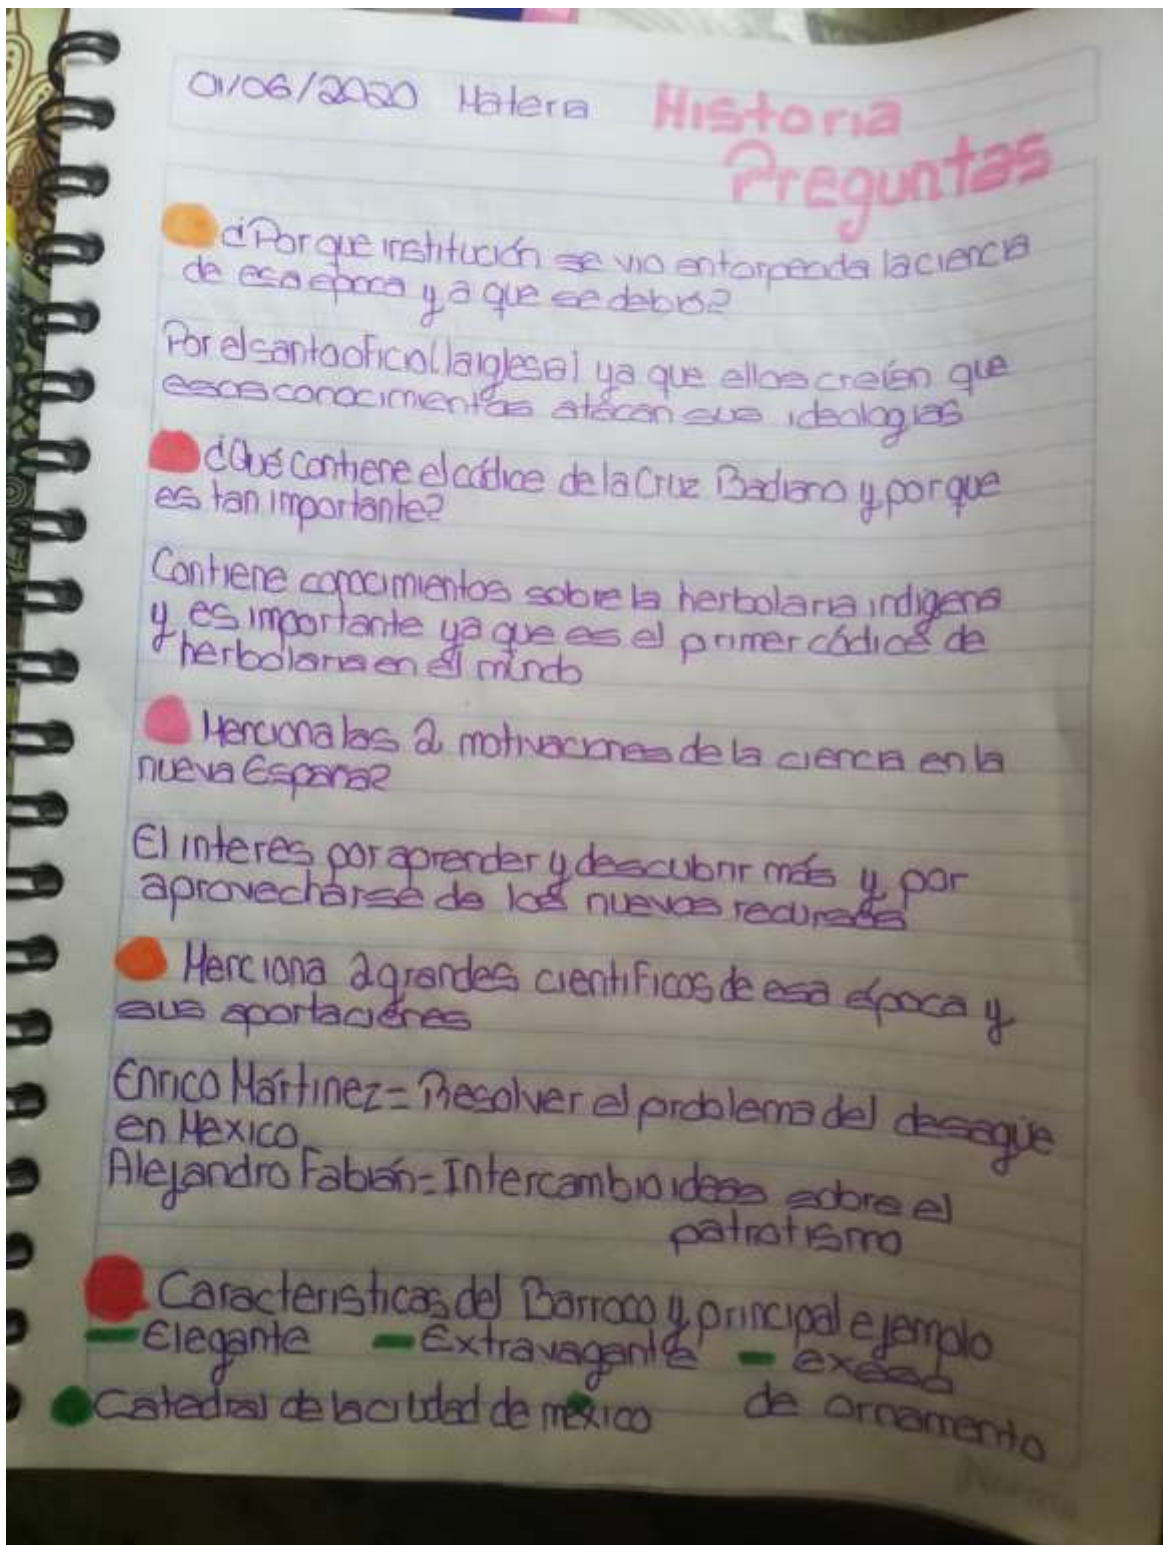 01/06/2020 Materia Historia
Preguntas
¿Por que institución se vio entorpecida la ciencia
de esa epoca y a que se debio?
Por el santo oficio (la iglesia) ya que ellos creían que
esos conocimientos atacan sus ideologías
¿Qué contiene el códice de la Cruz Badiano y por que
es tan importante?
Contiene conocimientos sobre la herbolaria indigena
y es importante ya que es el primer códice de
herbolaria en el mundo
Menciona las 2 motivaciones de la ciencia en la
nueva España?
El interes por aprender y descubrir más y por
aprovecharse de los nuevos recursos
Menciona 2 grandes cientificos de esa época y
sus aportaciones
Enrico Martinez = Resolver el problema del desagüe
en Mexico
Alejandro Fabián = Intercambio ideas sobre el
patriotismo
Caracteristicas del Barroco y principal ejemplo
- Elegante - Extravagante - exceso
Catedral de la ciudad de méxico de ornamento
Norma